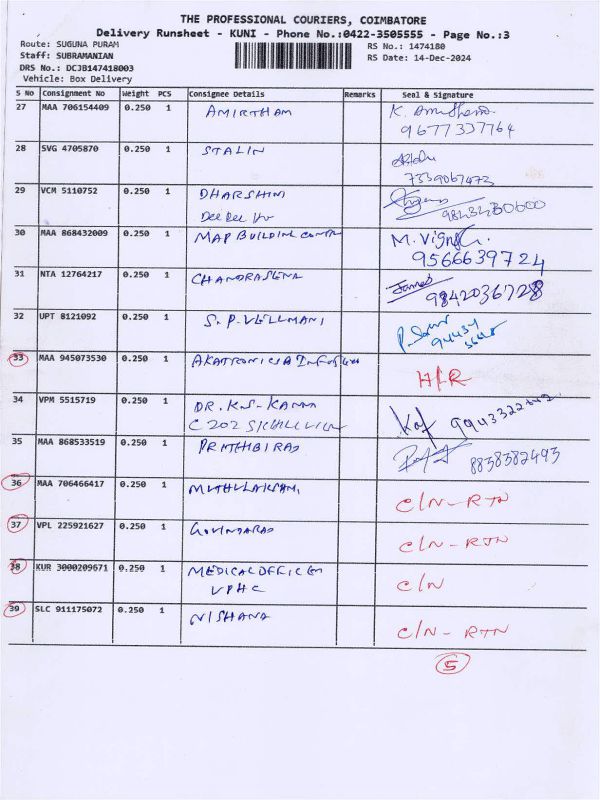 THE PROFESSIONAL COURIERS, COIMBATORE
Delivery Runsheet - KUNI - Phone No.:0422-3505555 - Page No.:3
Route: SUGUNA PURAM RS No.: 1474180
Staff: SUBRAMANIAN RS Date: 14-Dec-2024
DRS No.: DCJB147418003
Vehicle: Box Delivery
S No Consignment No Weight PCS Consignee Details Remarks Seal & Signature
27 MAA 706154409 0.250 1 AMIRTHAM K.
9677337764
28 SVG 4705870 0.250 1 STALIN
7339067473
29 VCM 5110752 0.250 1 DHARSHIM
30 MAA 868432009 0.250 1 MAP BUILDING M. Vignesh.
9566639724
31 NTA 12764217 0.250 1 CHANDRASENA James
9842036728
32 UPT 8121092 0.250 1 S.P. VELLMANI
33 MAA 945073530 0.250 1 H/R
34 VPM 5515719 0.250 1 DR. K.S. KANNA
C 202
35 MAA 868533519 0.250 1 PRITHBIRAJ 8838382493
36 MAA 706466417 0.250 1 C/N - RTN
37 VPL 225921627 0.250 1 GOVINDARAJ C/N - RTN
38 KUR 3000209671 0.250 1 MEDICAL OFFICER C/N
UPHC
39 SLC 911175072 0.250 1 NISHANA C/N - RTN
5